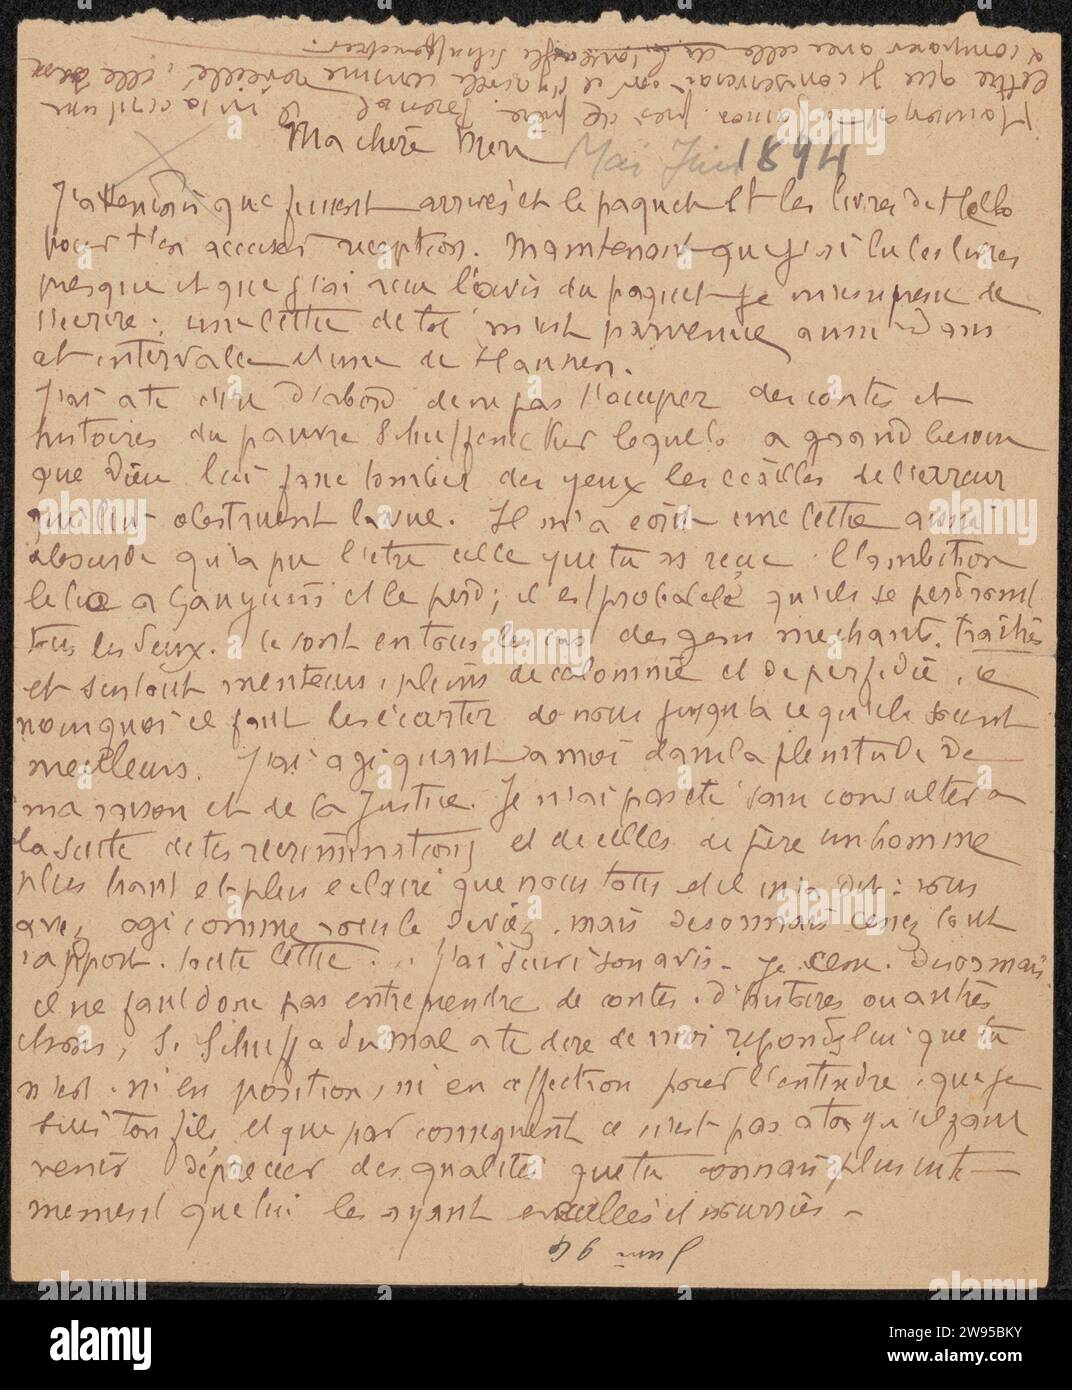 Ma chère Mère
Mai Juin 1894
J'attendais que fussent arrivés et le paquet et les livres de Hello
pour t'en accuser réception. Maintenant que j'ai lu les livres
presque et que j'ai reçu l'avis du paquet je m'empresse de
t'écrire; une lettre de toi m'est parvenue aussi dans
cet intervalle et une de
J'ai à te dire d'abord de ne pas t'occuper des contes et
histoires du pauvre Schuffenecker lequel a grand besoin
que Dieu lui fasse tomber des yeux les écailles de l'erreur
qui lui obstruent la vue. Il m'a écrit une lettre aussi
absurde qu'a pu l'être celle que tu as reçue. L'ambition
le lie à Gauguin et le perd; il est probable qu'ils se perdront
tous les deux. Ce sont en tous les cas des gens méchants, traîtres
et surtout menteurs, pleins de calomnie et de perfidie, c'e
pourquoi il faut les écarter de nous jusqu'à ce qu'ils soient
meilleurs. J'ai agi quant à moi dans la plénitude de
ma raison et de la Justice. Je n'ai pas été sans consulter à
la suite de tes récriminations et de celles de un homme
plus haut et plus éclairé que nous tous et il m'a dit: vous
avez agi comme vous le deviez, mais désormais cessez tout
rapport, toute lettre... J'ai suivi son avis. Désormais
il ne faut donc pas entreprendre de contes, d'histoires ou autres
choses, si Schuff a du mal à te dire de moi réponds lui que tu
n'es ni en position, ni en affection pour l'entendre, que je
suis ton fils et que par conséquent ce n'est pas à toi qu'il faut
venir déprécier des qualités que tu connais plus inti-
mement que lui les ayant et nourries -
Juin 94
lettre que je conserverai
à comparer avec celle de Schuffenecker.